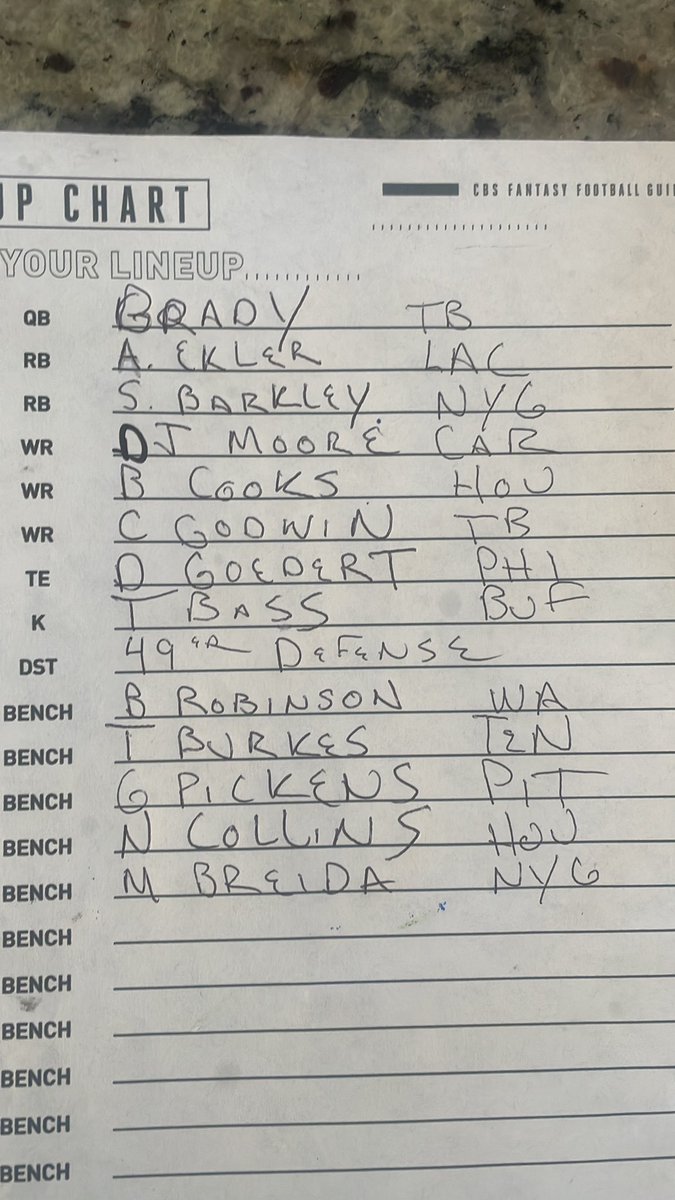 UP CHART
CBS FANTASY FOOTBALL
YOUR LINEUP
QB BRADY TB
RB A. EKLER LAC
RB S. BARKLEY NYG
WR DJ MOORE CAR
WR B COOKS HOU
WR C GODWIN TB
TE D GOEDERT PHI
K T BASS BUF
DST 49ER DEFENSE
BENCH B ROBINSON WA
BENCH T BURKES TEN
BENCH G PICKENS PIT
BENCH N COLLINS HOU
BENCH M BREIDA NYG
BENCH
BENCH
BENCH
BENCH
BENCH
BENCH